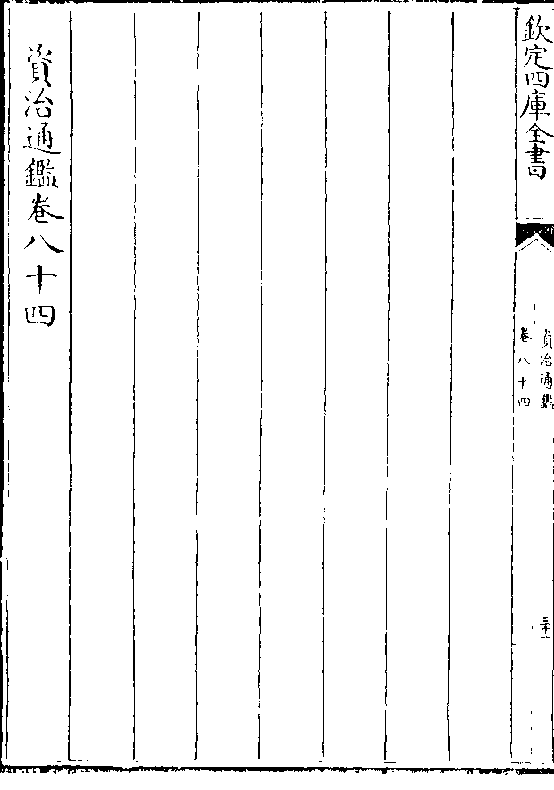 欽定四庫全書
資治通鑑
卷八十四
三十一
資治通鑑卷八十四